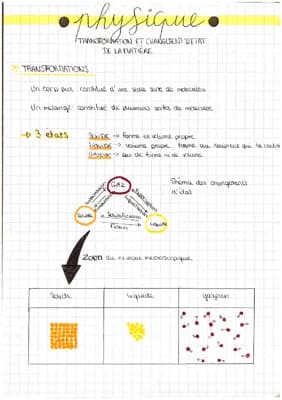 physique
TRANSFORMATION ET CHANGEMENT D'ETAT
DE LA MATIÈRE
TRANSFORMATIONS
Un corp pur constitué d'une seule sorte de molécules
Un mélange constitué de plusieurs sortes de molécules
→ 3 états
SOLIDE → forme et volume propre
LIQUIDE → volume propre forme que
GAZEUX → pas de forme ni de volume
GAZ
Schéma des changements
d'état
Solide
Solidification
Liquide
Fusion
Zoom au niveau microscopique
Solide
liquide
gazeux